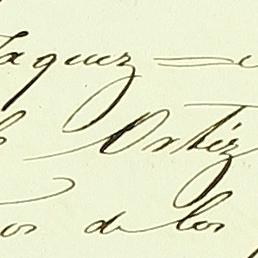 Jaquez =
Ortíz
os de los